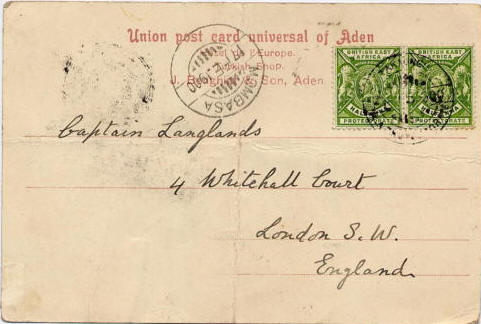 Union post card universal of Aden
Hotel de l'Europe.
Turkish Shop.
J. Benghiat & Son, Aden
MOMBASA
BRITISH EAST AFRICA
PROTECTORATE
BRITISH EAST AFRICA
PROTECTORATE
Captain Langlands
4 Whitehall Court
London S.W.
England